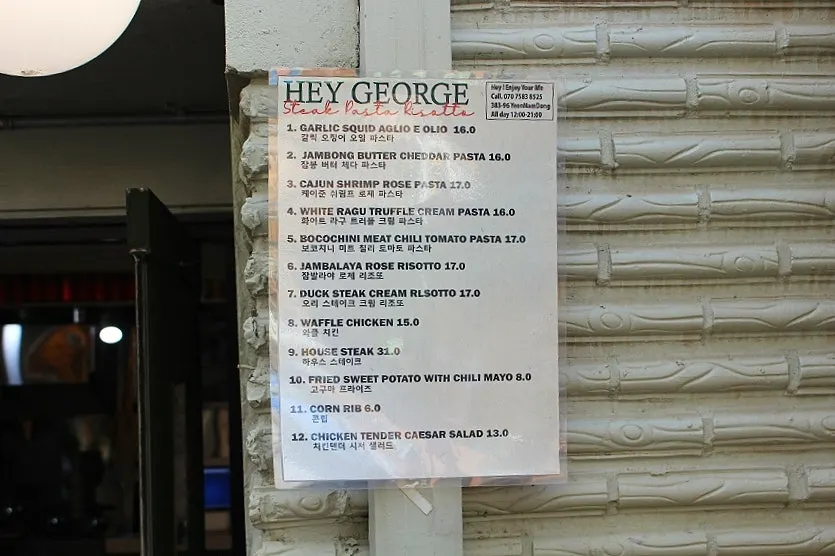 HEY GEORGE
Steak Pasta Risotto
Hey ! Enjoy Your life
Call. 070 7583 8925
383-96 YeonNamDong
All day 12:00-21:00
1. GARLIC SQUID AGLIO E OLIO 16.0
갈릭 오징어 오일 파스타
2. JAMBONG BUTTER CHEDDAR PASTA 16.0
잠봉 버터 체다 파스타
3. CAJUN SHRIMP ROSE PASTA 17.0
케이준 쉬림프 로제 파스타
4. WHITE RAGU TRUFFLE CREAM PASTA 16.0
화이트 라구 트러플 크림 파스타
5. BOCOCHINI MEAT CHILI TOMATO PASTA 17.0
보코치니 미트 칠리 토마토 파스타
6. JAMBALAYA ROSE RISOTTO 17.0
잠발라야 로제 리조또
7. DUCK STEAK CREAM RLSOTTO 17.0
오리 스테이크 크림 리조또
8. WAFFLE CHICKEN 15.0
와플 치킨
9. HOUSE STEAK 31.0
하우스 스테이크
10. FRIED SWEET POTATO WITH CHILI MAYO 8.0
고구마 프라이즈
11. CORN RIB 6.0
콘립
12. CHICKEN TENDER CAESAR SALAD 13.0
치킨텐더 시저 샐러드